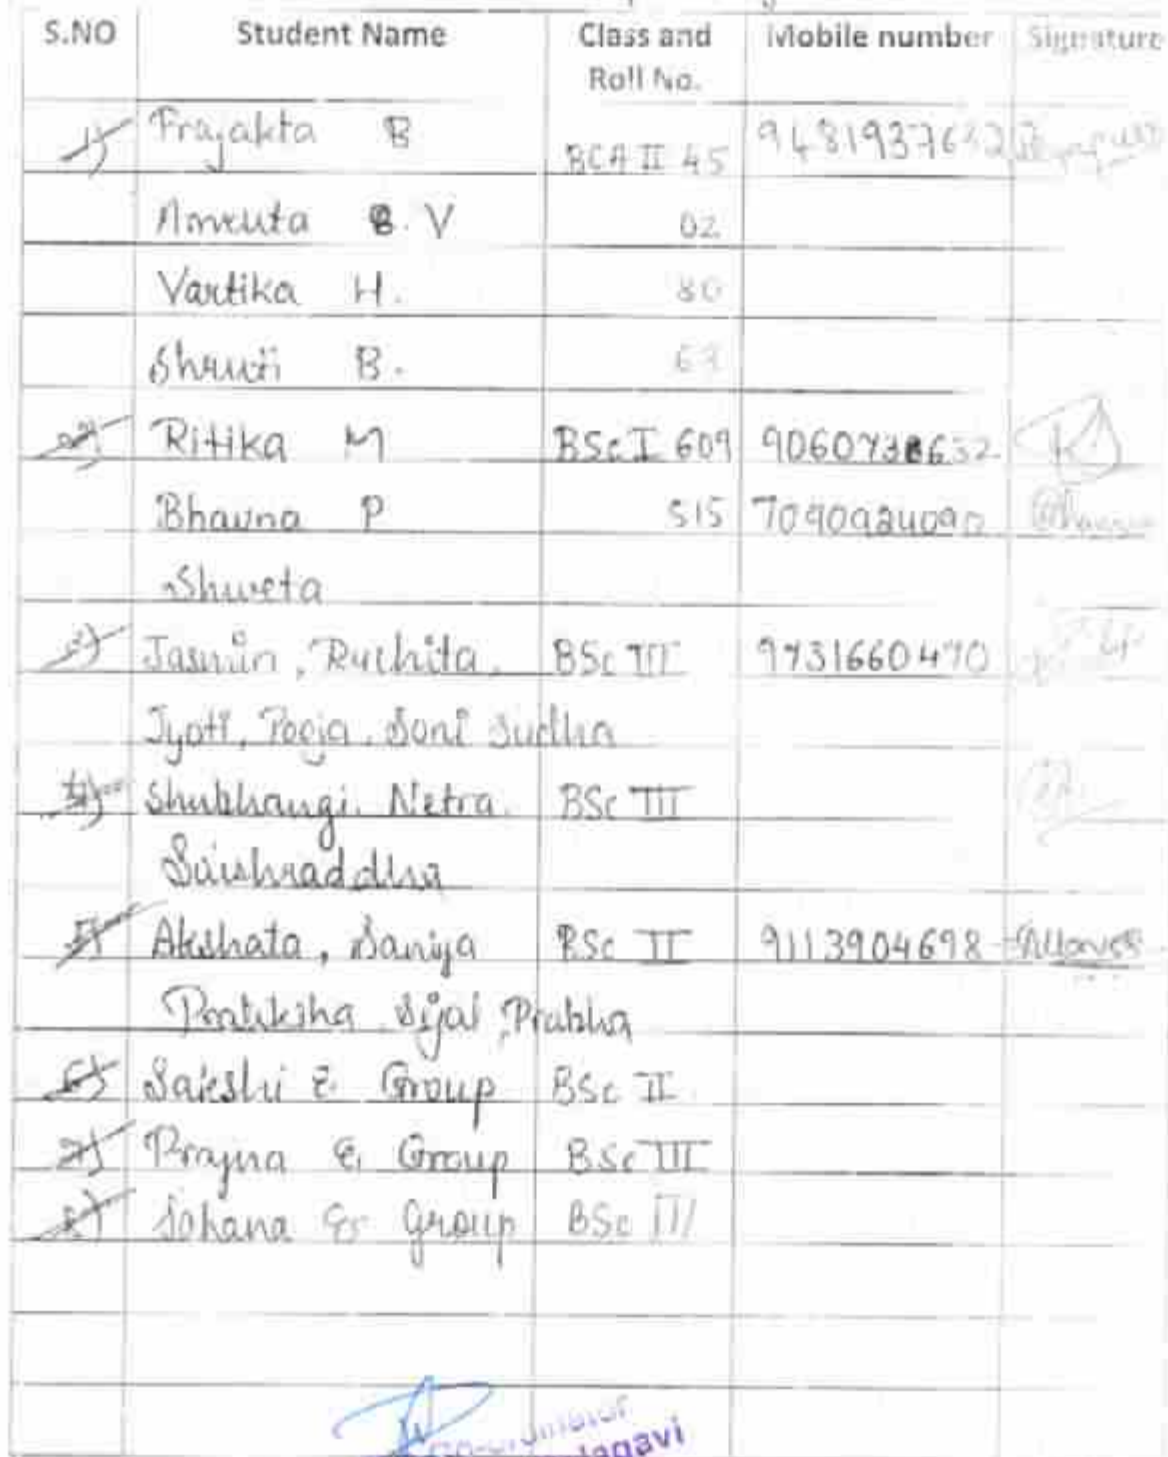 S.NO Student Name Class and Roll No. Mobile number Signature
1) Prajakta B BCA II 45
Amruta B. V 02
Vartika H. 80
Shruti B.
2) Ritika M BSc I 609
Bhavna P 515 7090924090
Shweta
3) Jasmin, Ruchita, BSc III 9731660470
Jyoti, Pooja, Soni Sudha
4) Shubhangi, Netra, BSc III
Saishraddha
5) Akshata, Saniya BSc II 9113904698
Pratiksha, Sijal, Prabha
6) Sakshi & Group BSc II
7) Prajna & Group BSc III
8) Sohana & Group BSc III
Co-ordinator